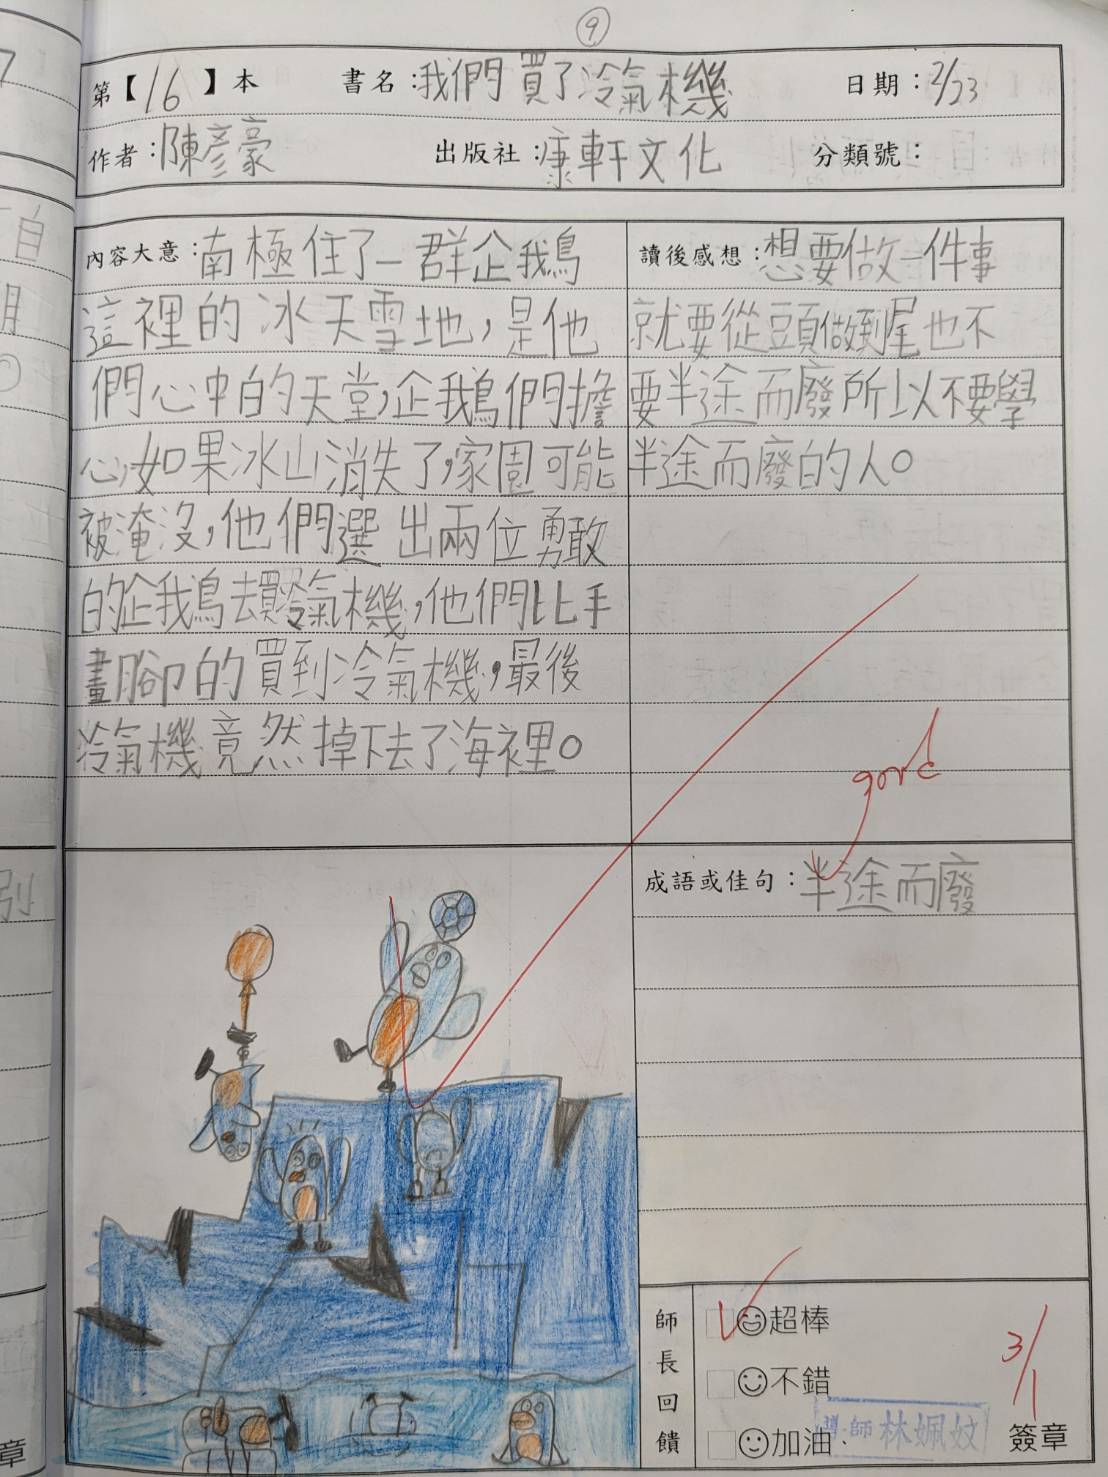 9
第【16】本 書名:我們買了冷氣機 日期:2/23
作者:陳彥豪 出版社:康軒文化 分類號:
內容大意:南極住了一群企鵝
這裡的冰天雪地,是他
們心中的天堂,企鵝們擔
心如果冰山消失了,家園可能
被淹沒,他們選出兩位勇敢
的企鵝去買冷氣機,他們比手
畫腳的買到冷氣機,最後
冷氣機竟然掉下去了海裡。
讀後感想:想要做一件事
就要從頭做到尾也不
要半途而廢所以不要學
半途而廢的人。
good
成語或佳句:半途而廢
師長回饋
超棒
不錯
加油
3/1
導師 林姵妏
簽章
7
自
月
別
章